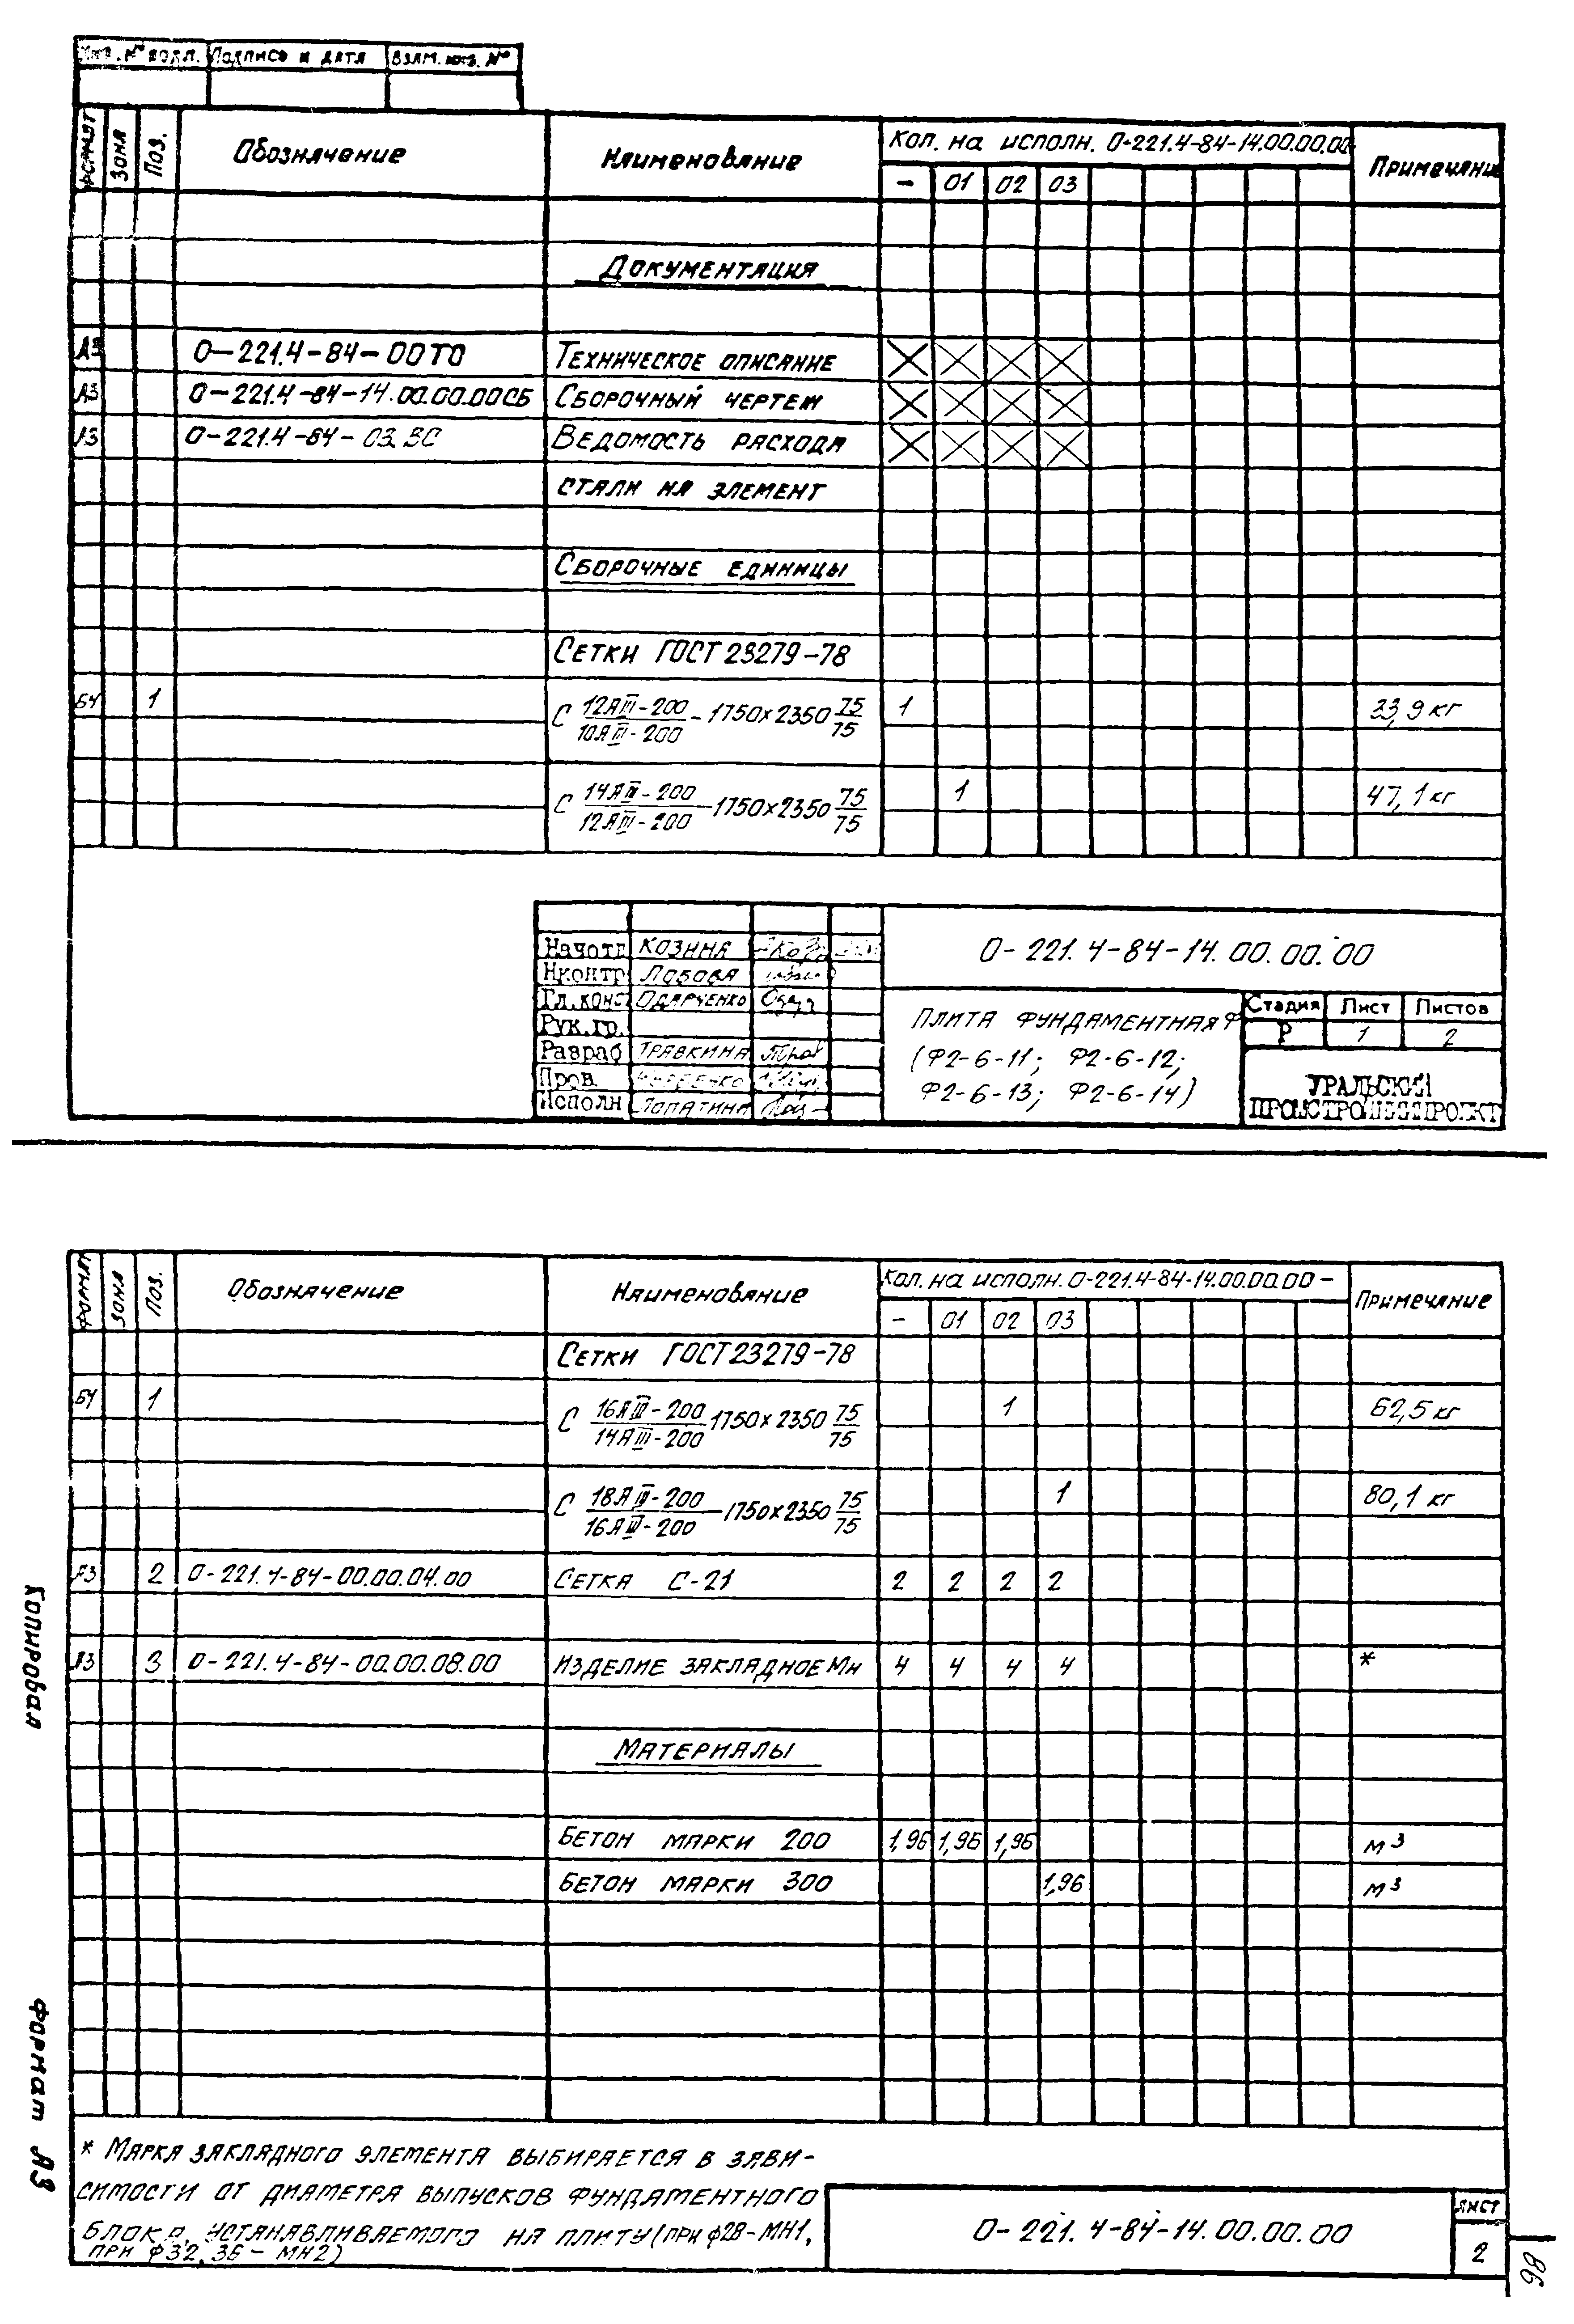 Инв. № подл. Подпись и дата Взам. инв. №
Формат Зона Поз. Обозначение Наименование Кол. на исполн. О-221.4-84-14.00.00.00- Примечание
– 01 02 03
Документация
А3 О-221.4-84-00ТО Техническое описание
А3 О-221.4-84-14.00.00.00СБ Сборочный чертеж
А3 О-221.4-84-03.ВС Ведомость расхода
стали на элемент
Сборочные единицы
Сетки ГОСТ 23279-78
БЧ 1 С 12АIII-200/10АIII-200 -1750×2350 75/75 1 33,9 кг
С 14АIII-200/12АIII-200 -1750×2350 75/75 1 47,1 кг
О-221.4-84-14.00.00.00
Начотд Козина
Нконтр Лобова
Гл.конс Одарченко
Рук.гр.
Разраб Травкина
Пров.
Исполн Лопатина
Плита фундаментная Ф
(Ф2-6-11; Ф2-6-12;
Ф2-6-13; Ф2-6-14)
Стадия Лист Листов
Р 1 2
УРАЛЬСКИЙ
ПРОМСТРОЙНИИПРОЕКТ
Формат Зона Поз. Обозначение Наименование Кол. на исполн. О-221.4-84-14.00.00.00- Примечание
– 01 02 03
Сетки ГОСТ 23279-78
БЧ 1 С 16АIII-200/14АIII-200 1750×2350 75/75 1 62,5 кг
С 18АIII-200/16АIII-200 -1750×2350 75/75 1 80,1 кг
А3 2 О-221.4-84-00.00.04.00 Сетка С-21 2 2 2 2
А3 3 О-221.4-84-00.00.08.00 Изделие закладное Мн 4 4 4 4 *
Материалы
Бетон марки 200 1,96 1,96 1,96 м³
Бетон марки 300 1,96 м³
* Марка закладного элемента выбирается в зави-
симости от диаметра выпусков фундаментного
блока, устанавливаемого на плиту (при ф28-МН1,
при ф32, 36 - МН2)
О-221.4-84-14.00.00.00
Лист
2
Копировал
Формат А3
86